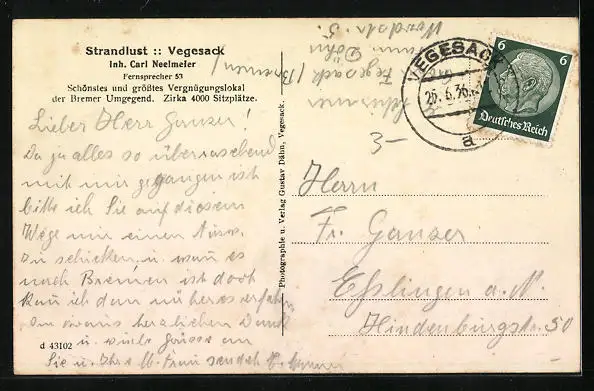 Strandlust :: Vegesack
Inh. Carl Neelmeier
Fernsprecher 53
Schönstes und größtes Vergnügungslokal
der Bremer Umgegend. Zirka 4000 Sitzplätze.
Lieber Herr Ganser!
Da ja alles so überraschend
mit mir gegangen ist
bitte ich Sie auf diesem
Wege mir einen
zu schicken u. wenn es
nach Bremen ist doch
kan ich dan näheres
Im voraus herzlichen Dank
u. viele Grüsse an
Sie u. Ihre Frau sendet
d 43102
Photographie u. Verlag Gustav Dähn, Vegesack.
Vegesack / Bremen
VEGESACK
25.6.36
a
6 6
Deutsches Reich
3-
Herrn
Fr. Ganser
Eßlingen a. N.
Hindenburgstr. 50